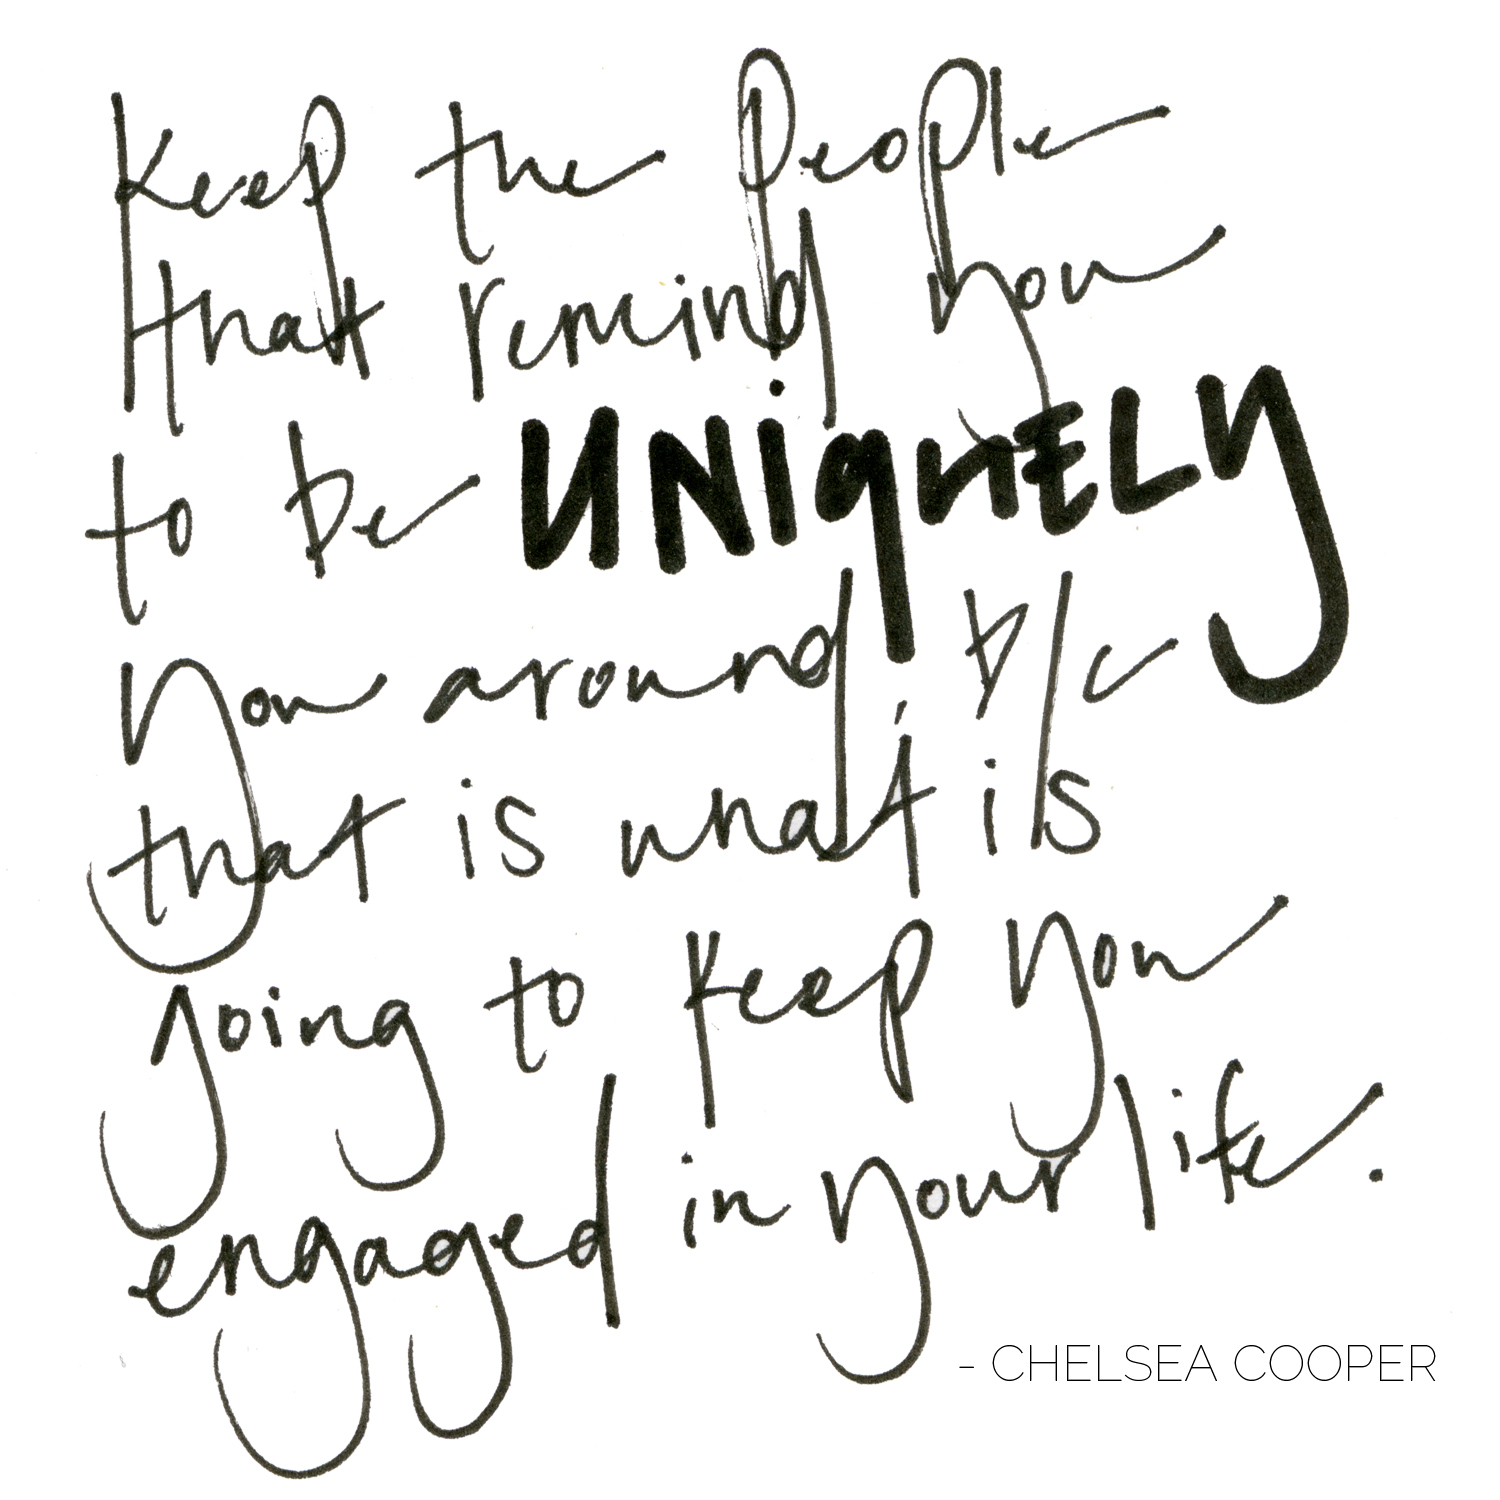 Keep the people
that remind you
to be UNiqUELY
you around, b/c
that is what is
going to keep you
engaged in your life.
- CHELSEA COOPER